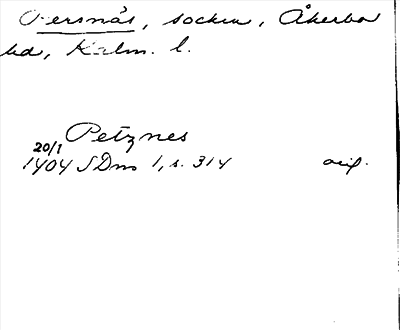 Persnäs, socken, Åkerbo
hd, Kalm. l.
Petznes
20/1
1404 SDm 1, s. 314 orig.